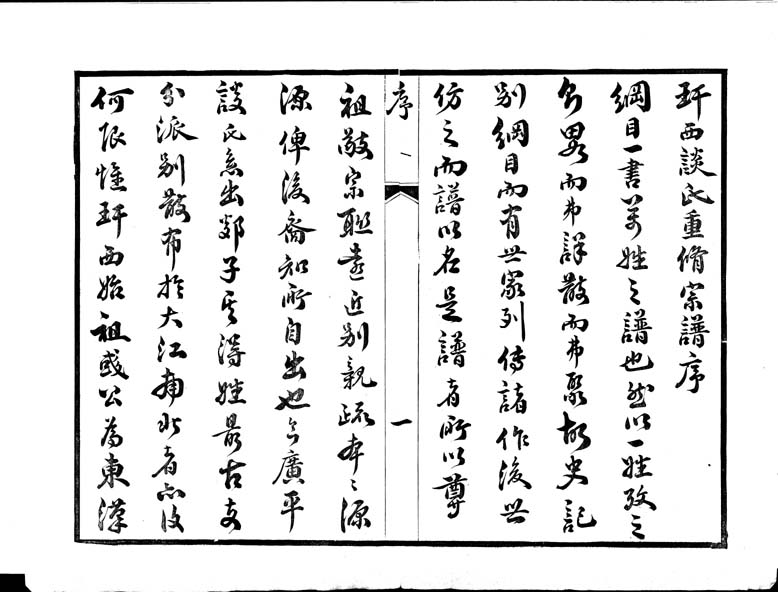 玕西談氏重脩宗譜序
綱目一書萬姓之譜也然以一姓攷之
多畧而弗詳散而弗聚故史記
別綱目而有世家列傳諸作後世
仿之而譜以名是譜者所以尊
序
一
祖敬宗聯遠近別親疏本本源
源俾後裔知所自出也今廣平
談氏系出郯子其得姓最古支
分派別散布於大江南北者亦
何限惟玕西始祖彧公為東漢